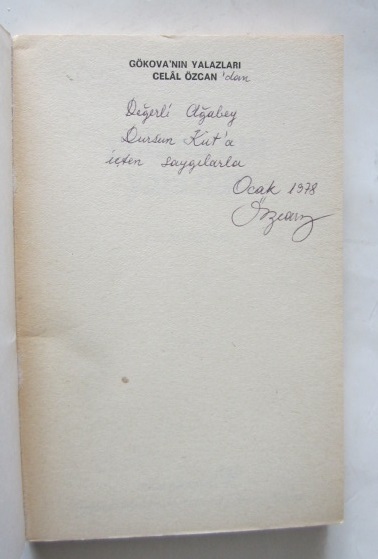 GÖKOVA'NIN YALAZLARI
CELÂL ÖZCAN 'dan
Değerli Ağabey
Dursun Kut'a
içten saygılarla
Ocak 1978
Özcan